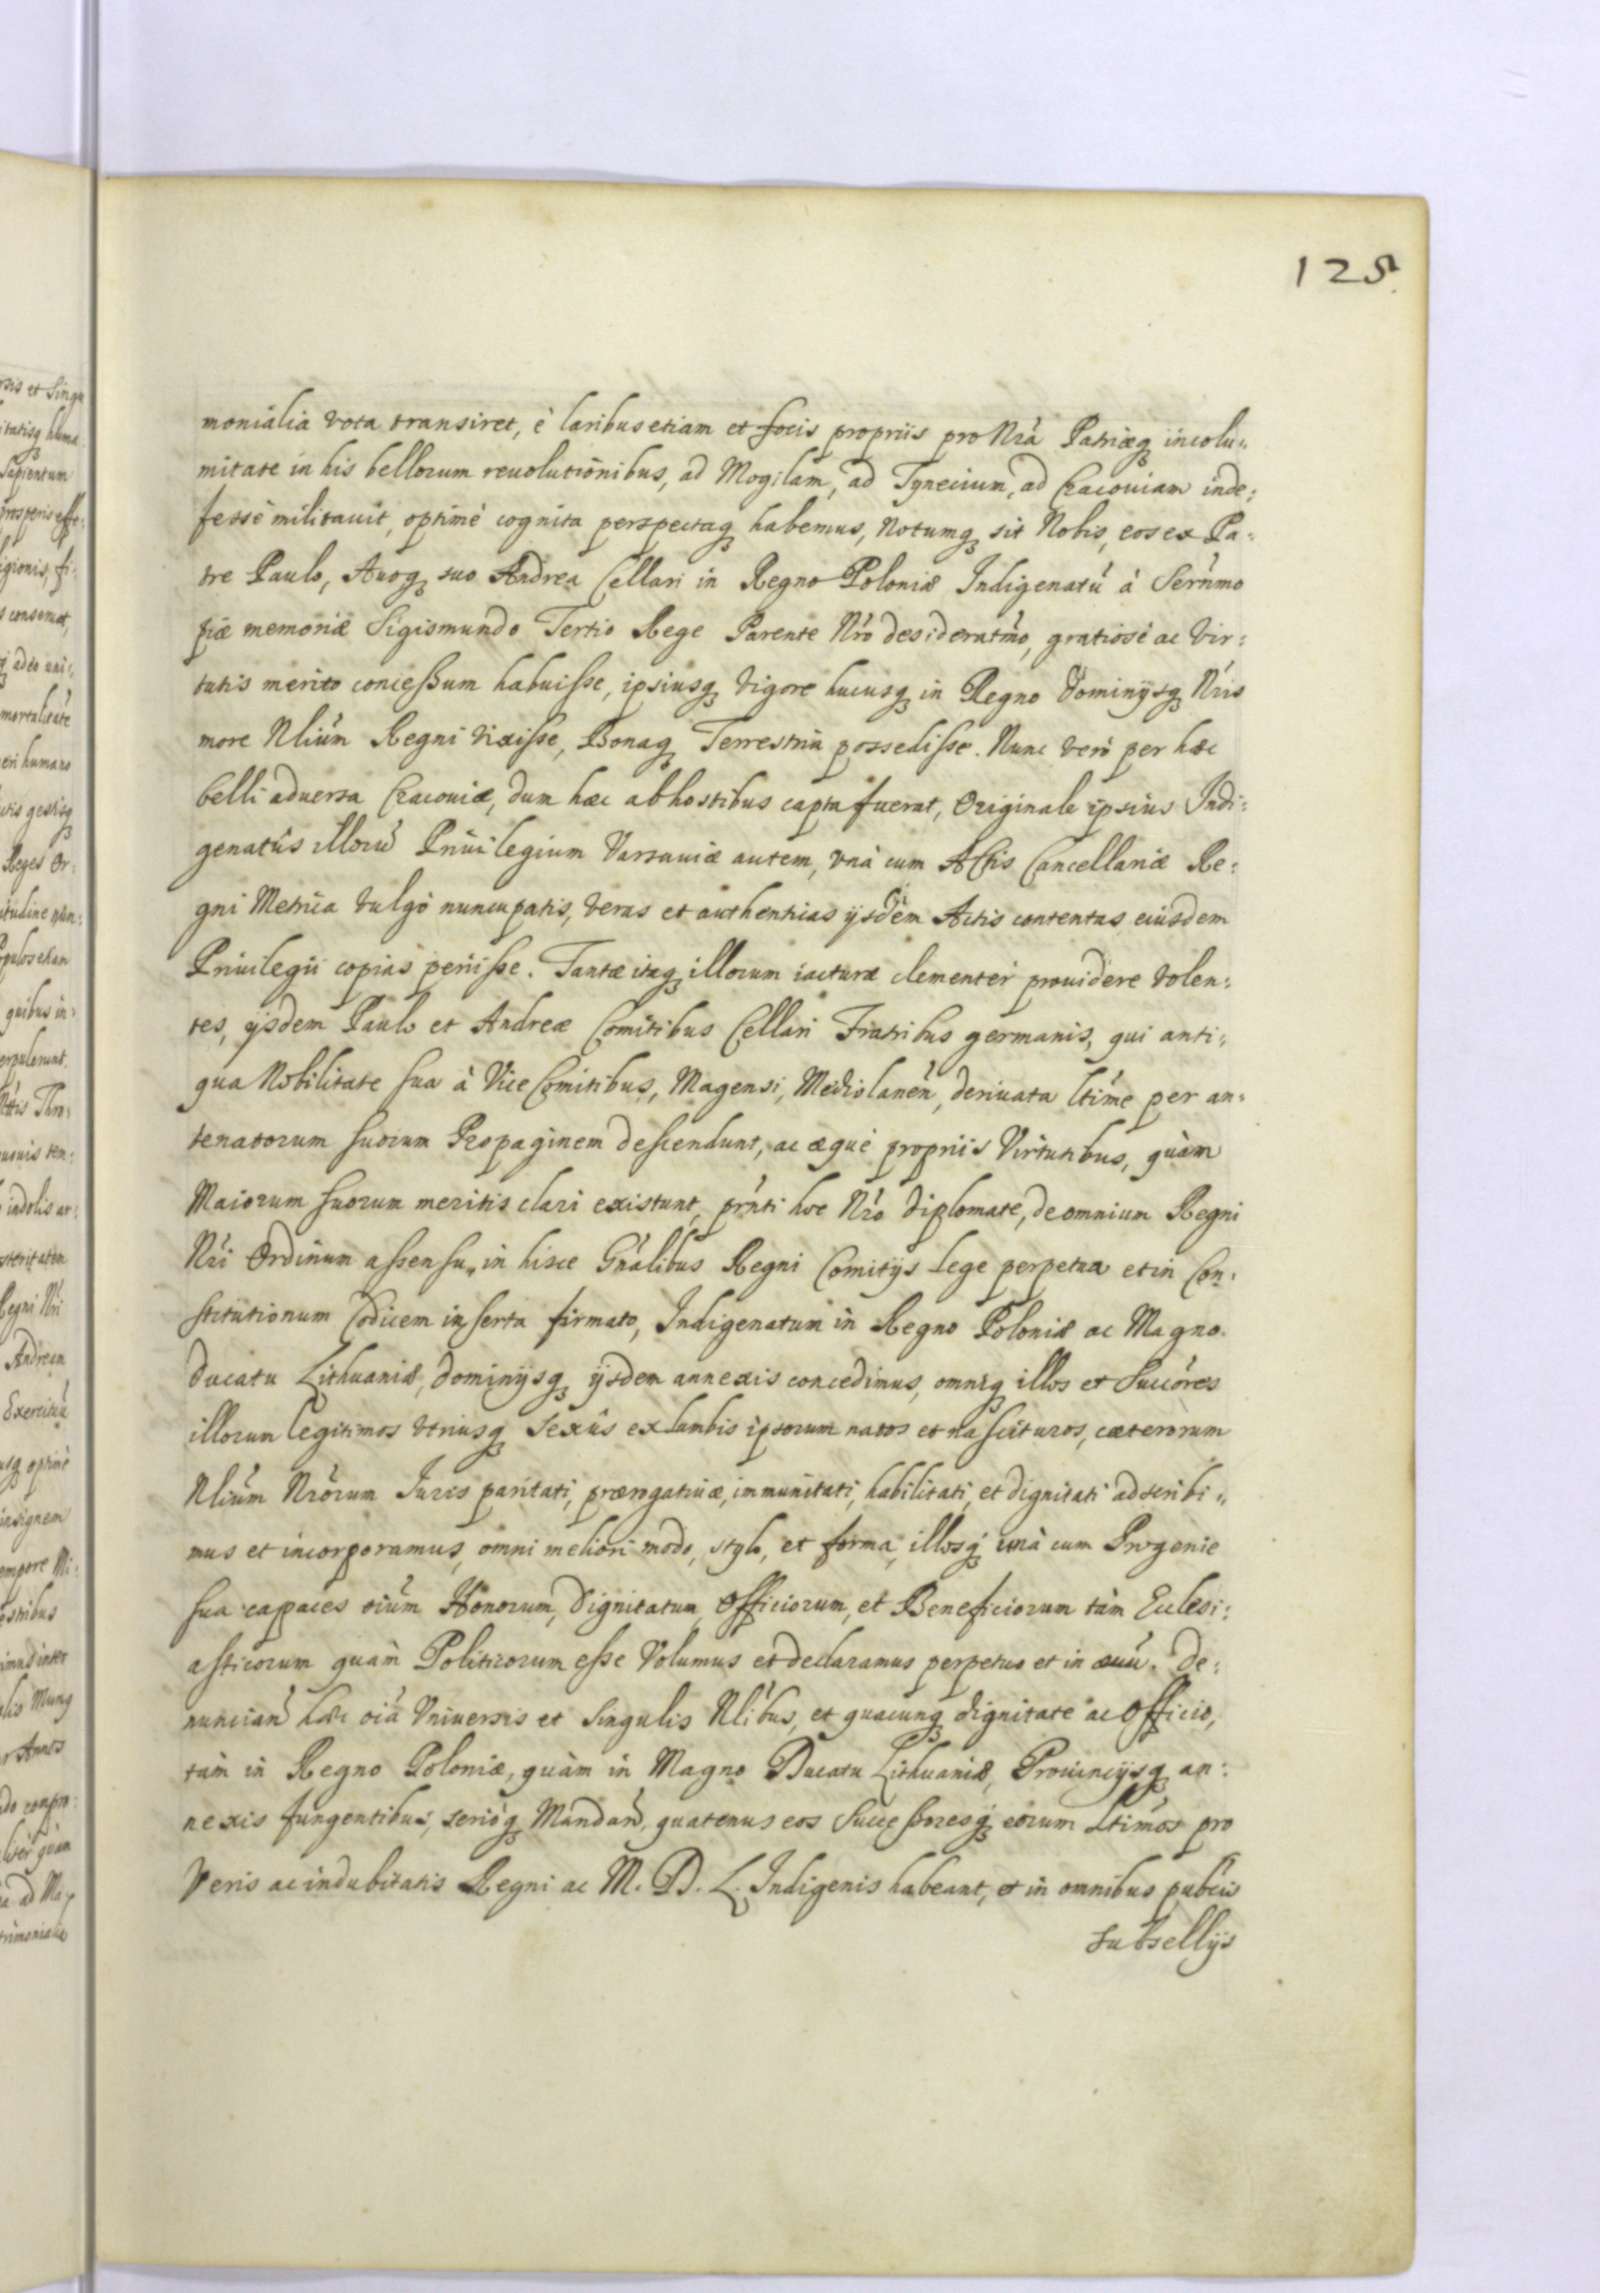 125
monialia vota transiret, è laribus etiam et focis propriis pro Nrá Patriæq₃ incolu„
mitate in his bellorum reuolutionibus, ad Mogilam, ad Tynecium, ad Cracouiam inde:
fessè militauit, optimè cognita perspectaq₃ habemus, Notumq₃ sit Nobis, eos ex Pa:
tre Paulo, Auoq₃ suo Andrea Cellari in Regno Poloniæ Indigenatú à Sernmo
piæ memoriæ Sigismundo Tertio Rege Parente Nró desideratmo, gratiosè ac Vir:
tutis merito concessum habuisse, ipsiusq₃ vigore hucusq₃ in Regno Dominÿsq₃ Nris
more Nliúm Regni vixisse, Bonaq₃ Terrestria possedisse. Nunc verò per hæc
belli aduersa Cracouiæ, dum hæc ab hostibus capta fuerat, Originale ipsius Indi:
genatûs illorú Priuilegium Varsauiæ autem, vnà cum Actis Cancellariæ Re:
gni Metrica vulgò nuncupatis, veras et authenticas ÿsdem Actis contentas eiusdem
Priuilegii copias periisse. Tantæ itaq₃ illorum iacturæ clementer prouidere volen:
tes, ÿsdem Paulo et Andreæ Comitibus Cellari Fratribus germanis, qui anti:
qua Nobilitate sua à Vice Comitibus, Magensi, Mediolanén, deriuata ltíme per an:
tenatorum suorum Propaginem descendunt, ac æquè propriis Virtutibus, quàm
Maiorum suorum meritis clari existunt, prńti hoc Nró diplomate, de omnium Regni
Nri Ordinum assensu„ in hisce Gńalibus Regni Comitÿs Lege perpetua et in Con:
stitutionum Codicem inserta firmato, Indigenatum in Regno Poloniæ ac Magno
Ducatu Lithuaniæ, dominÿsq₃ ÿsdem annexis concedimus, omniq₃ illos et Succóres
illorum legitimos vtriusq₃ sexûs ex lumbis ipsorum natos et nascituros, cæterorum
Nliúm Nrórum Iuris paritati, prærogatiuæ, immunitati, habilitati, et dignitati adscribi„
mus et incorporamus, omni meliori modo, stylo, et forma, illosq₃ vnà cum Progenie
sua capaces oiúm Honorum, Dignitatum, Officiorum, et Beneficiorum tàm Eclesi:
asticorum quàm Politicorum esse Volumus et declaramus perpetuo et in æuú. De:
nuncian̄ hæc oiá Vniuersis et singulis Nlíbus, et quacunq₃ dignitate ac Officio,
tàm in Regno Poloniæ, quàm in Magno Ducatu Lithuaniæ, Prouincÿsq₃ an:
nexis fungentibus, serióq₃ Mandan̄, quatenus eos Successoresq₃ eorum Ltimos pro
Veris ac indubitatis Regni ac M. D. L. Indigenis habeant, et in omnibus pubcis
subsellÿs